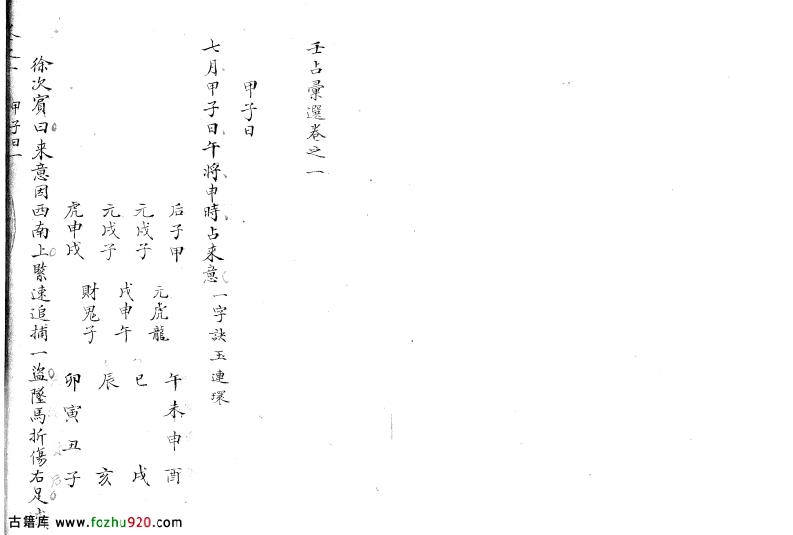 壬占彙選卷之一
甲子日
七月甲子日午將申時占來意 一字訣玉連環
后子甲 元虎龍 午未申酉
元戌子 戌申午 巳 戌
元戌子 財鬼子 辰 亥
虎申戌 卯寅丑子
徐次賓曰来意因西南上緊速追捕一盜墜馬折傷右足
甲子日一
古籍库 www.fozhu920.com